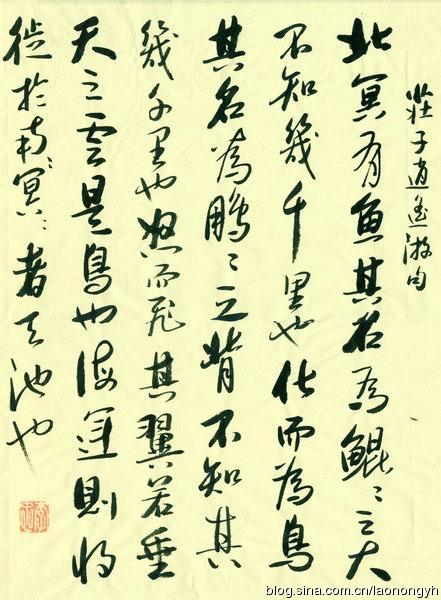 莊子逍遙游句
北冥有魚其名為鯤〻之大
不知幾千里也化而為鳥
其名為鵬〻之背不知其
幾千里也怒而飛其翼若垂
天之雲是鳥也海運則將
徙於南〻冥〻者天池也
blog.sina.com.cn/laonongyh